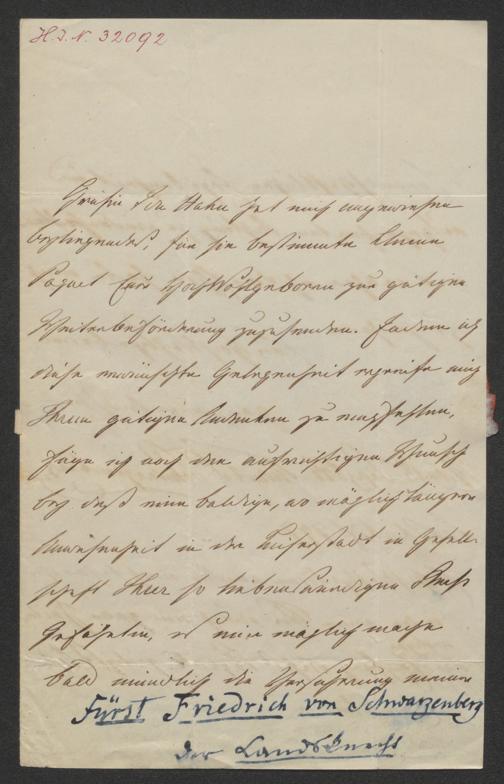 H.I.N. 32092
Gräfin Ida Hahn hat mich angewiesen
beyliegendes, für sie bestimmte kleine
Paquet Euer Hochwohlgeboren zur gütigen
Weiterbeförderung zuzusenden. Indem ich
diese erwünschte Gelegenheit ergreife mich
Ihrem gütigen Andenken zu empfehlen,
füge ich noch den aufrichtigen Wunsch
bey daß eine baldige, wo möglich längere
Anwesenheit in der Kaiserstadt in Gesell-
schaft Ihrer so liebenswürdigen
Gefährtin, es mir möglich mache
bald mündlich die Versicherung meiner
Fürst Friedrich von Schwarzenberg
der Landsknecht